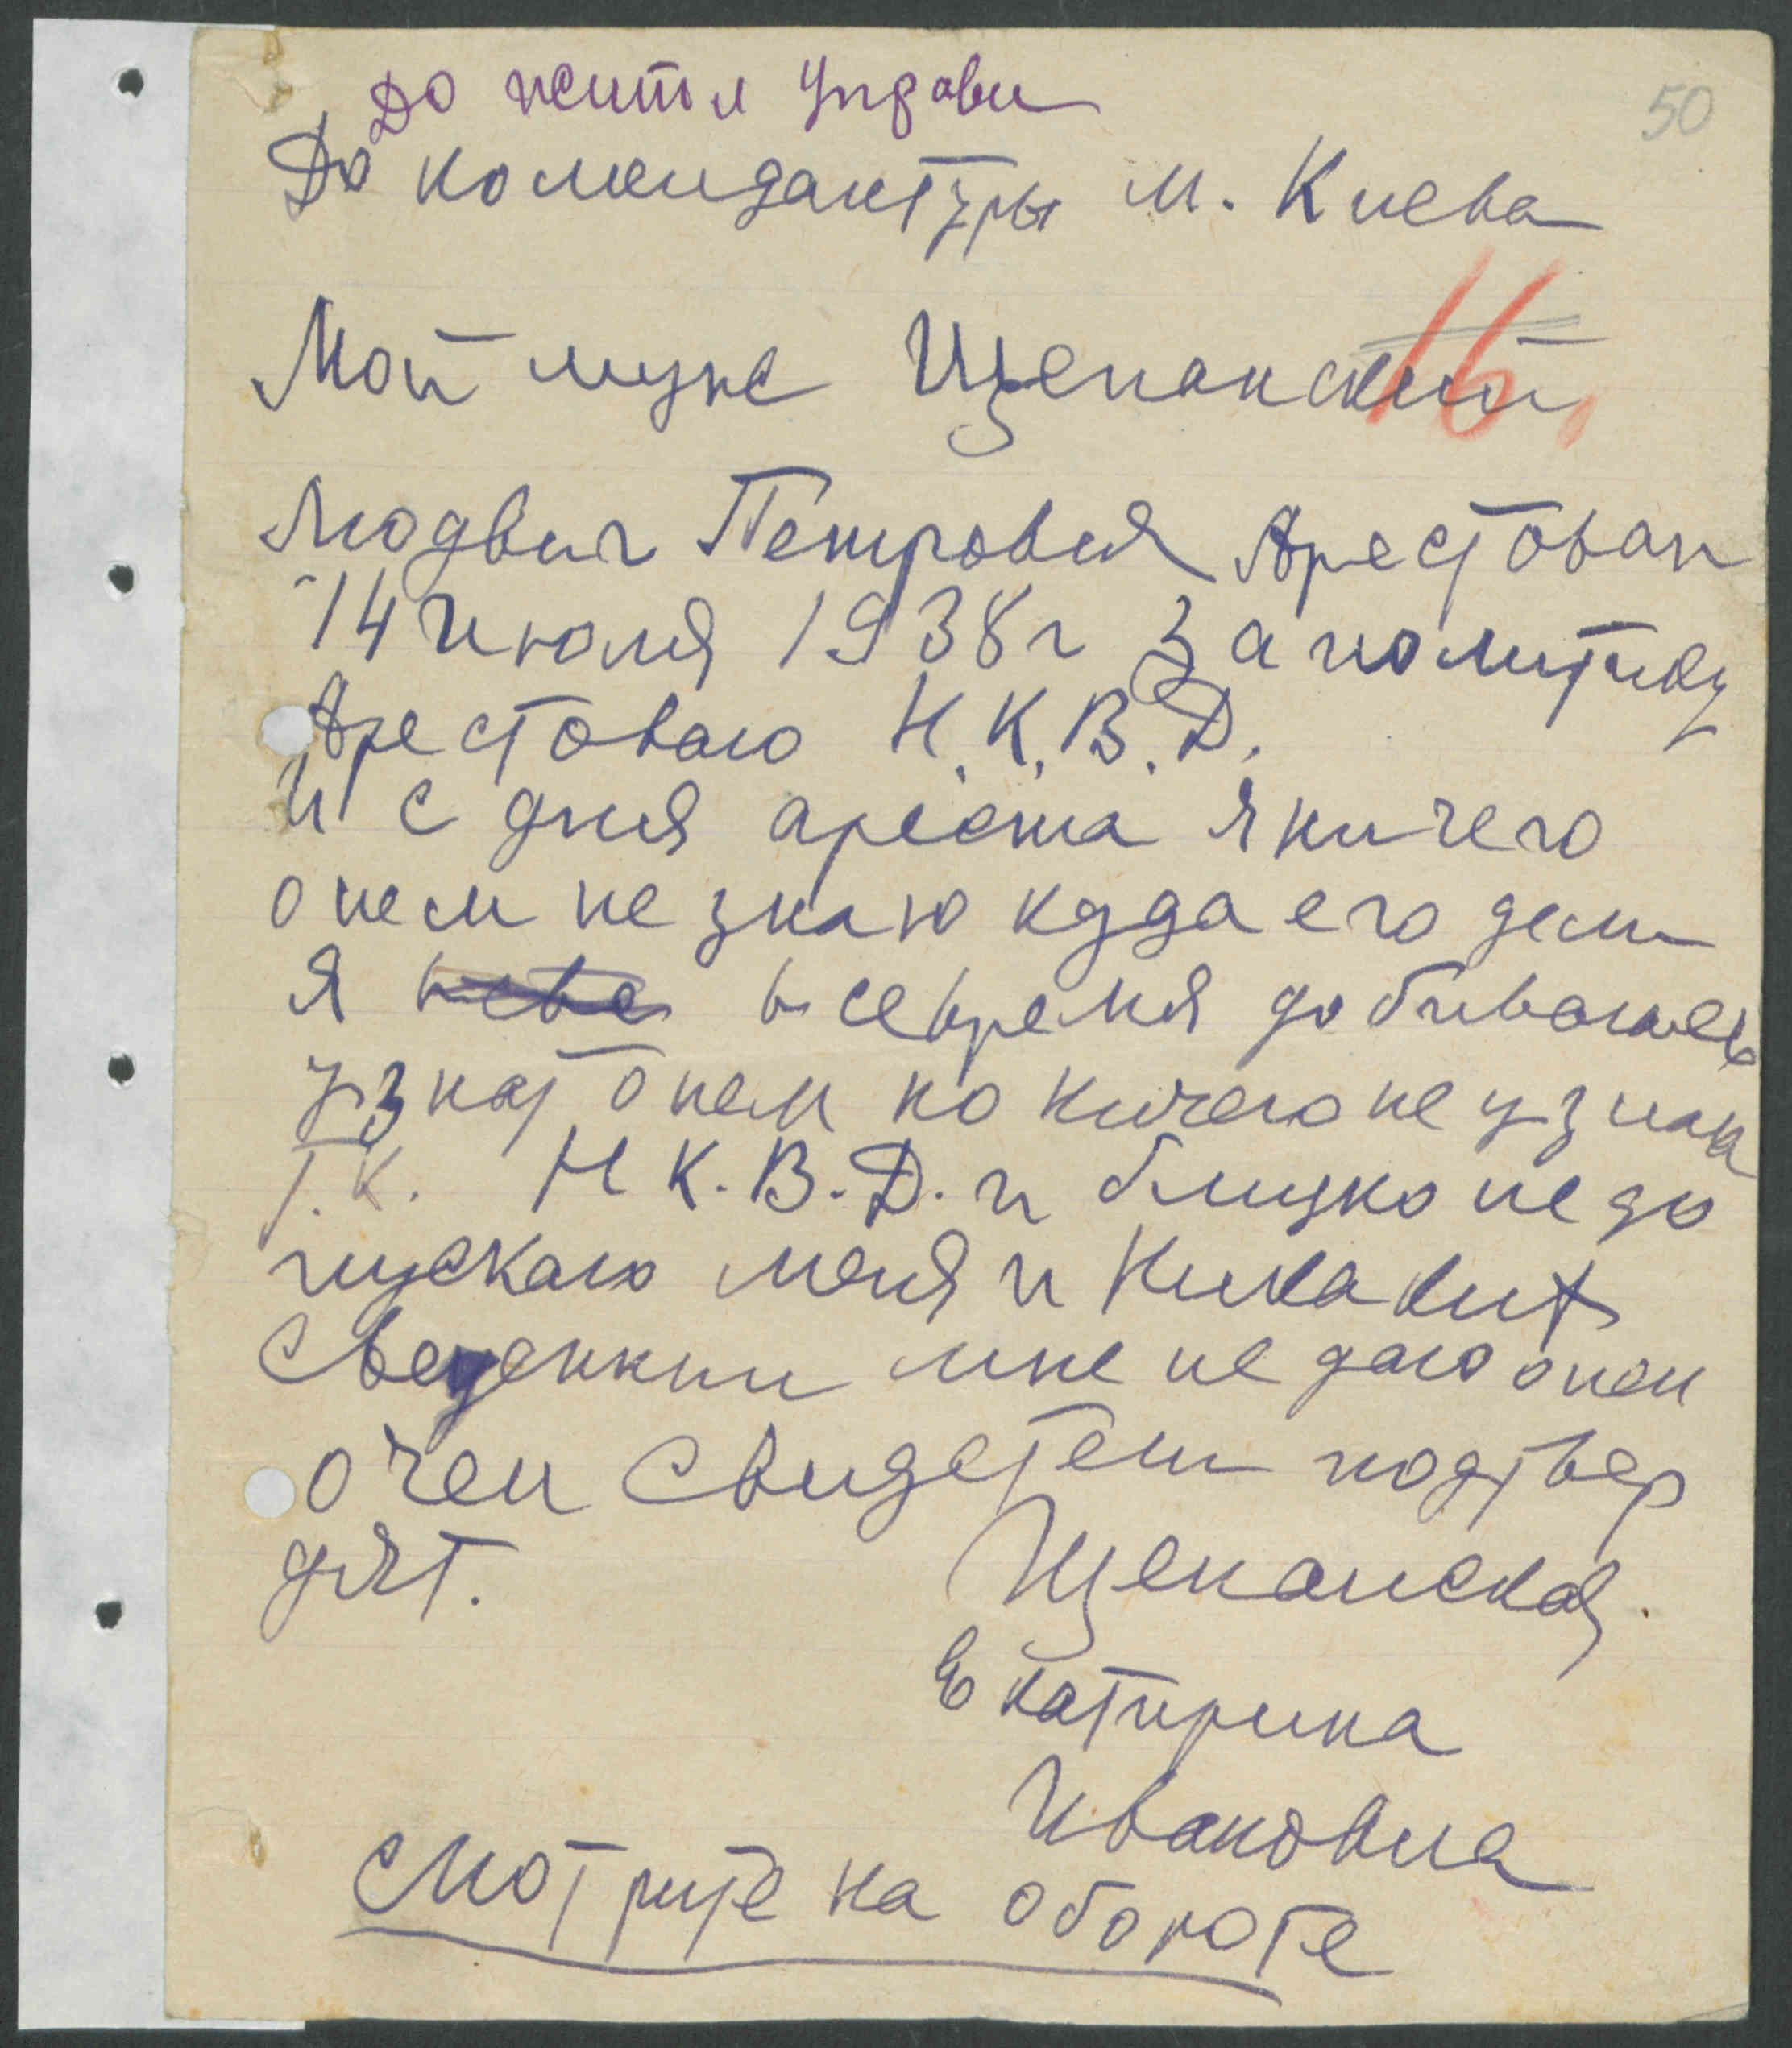 50
До житл управи
До комендантуры м. Киева
16.
Мой муже Щепанский
Людвиг Петровия Арестован
14 июля 1938 г за политику
Арестовало Н.К.В.Д.
и с дня ареста я ничего
о нем не знаю куда его дели
Я все время добивалась
узнат о нем но ничего не узнала
Т.К. Н К.В.Д. и блиско не до
пускало меня и Никаких
сведенний мне не дало о нем
о чем свидетели подтвер
дят. Щепанская
Екатирина
Ивановна
смотрите на обороте